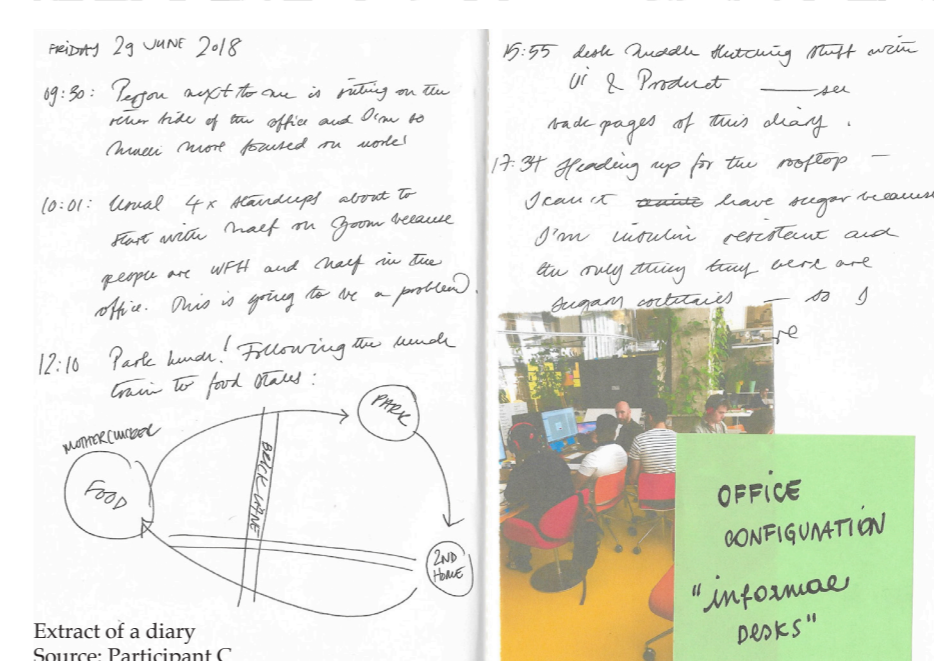 FRIDAY 29 JUNE 2018
09:30: Person next to me is sitting on the
other side of the office and I'm so
much more focused on work!
10:01: Usual 4x standups about to
start with half on Zoom because
people are WFH and half in the
office. This is going to be a problem.
12:10 Park lunch! Following the lunch
train to food stalls:
MOTHERCLUCKER
FOOD
BRICK LANE
PARK
2ND
HOME
15:55 desk huddle sketching stuff with
UI & Product — see
back pages of this diary.
17:34 Heading up for the rooftop —
I can't have sugar because
I'm insulin resistant and
the only thing they have are
sugary cocktails — so I
OFFICE
CONFIGURATION
"informal
DESKS"
Extract of a diary
Source: Participant C